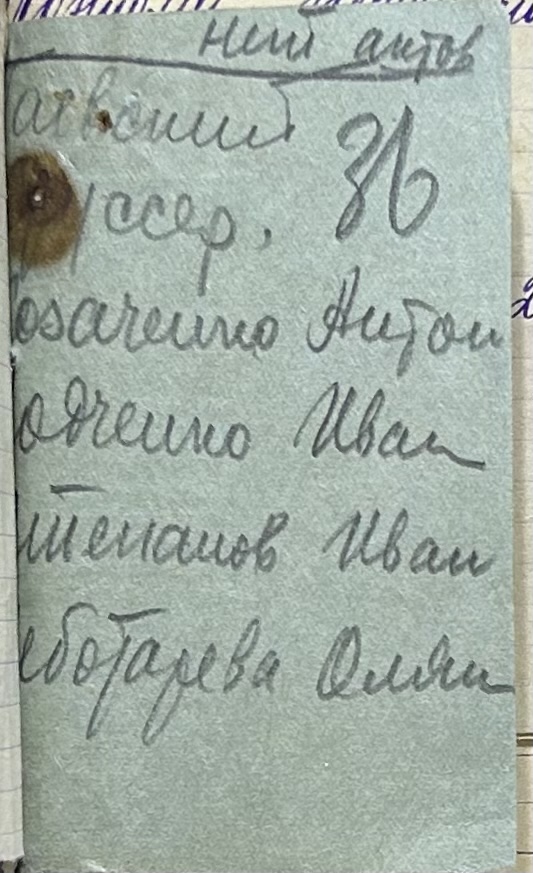 ний актов
аевский
уссер, 36
озаченко Антон
одченко Иван
Степанов Иван
еботарева Олян